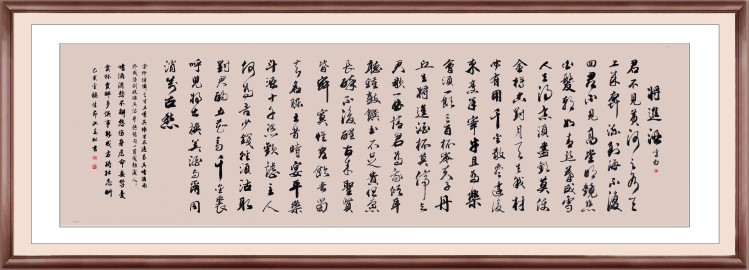 將進酒 李白
君不見黃河之水天
上來奔流到海不復
回君不見高堂明鏡悲
白髮朝如青絲暮成雪
人生得意須盡歡莫使
金樽空對月天生我材
必有用千金散盡還復
來烹羊宰牛且為樂
會須一飲三百杯岑夫子丹
丘生將進酒杯莫停與
君歌一曲請君為我傾耳
聽鐘鼓饌玉不足貴但願
長醉不復醒古來聖賢
皆寂寞惟有飲者留
其名陳王昔時宴平樂
斗酒十千恣歡謔主人
何為言少錢徑須沽取
對君酌五花馬千金裘
呼兒將出換美酒與爾同
消萬古愁